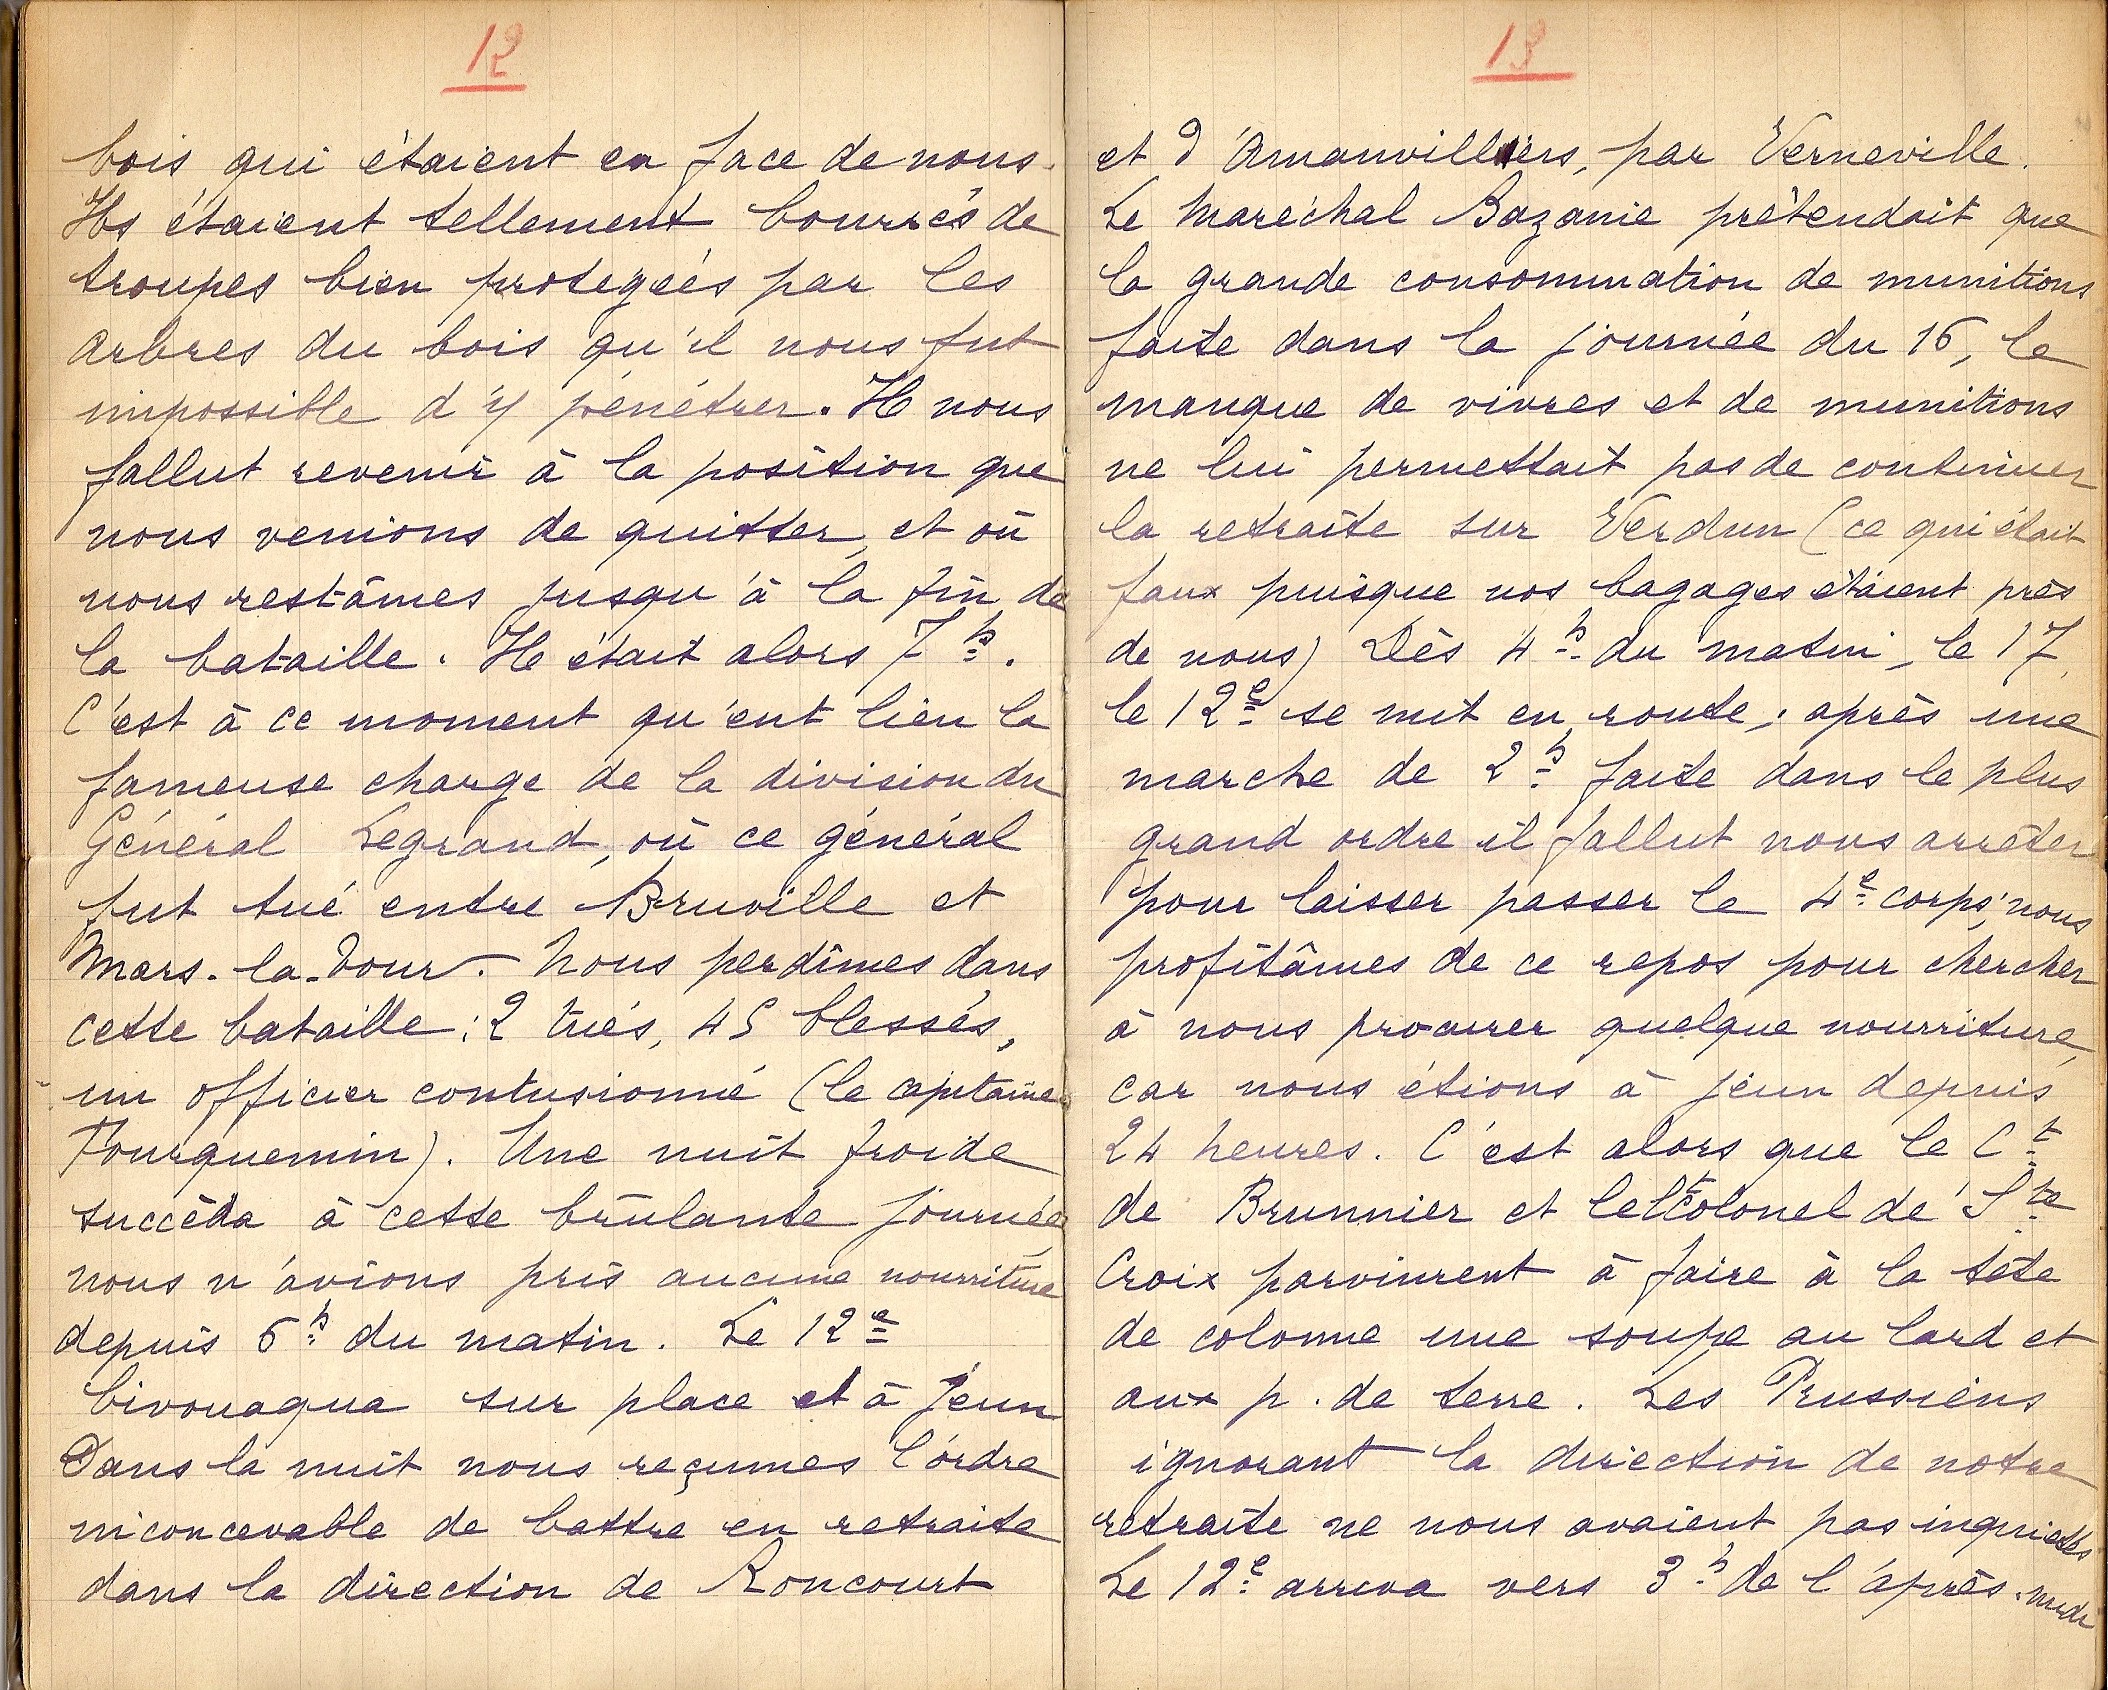 12
bois qui étaient en face de nous.
Ils étaient tellement bourrés de
troupes bien protégées par les
arbres du bois qu'il nous fut
impossible d'y pénétrer. Il nous
fallut revenir à la position que
nous venions de quitter, et où
nous restâmes jusqu'à la fin de
la bataille. Il était alors 7h.
C'est à ce moment qu'eut lieu la
fameuse charge de la division du
Général Legrand, où ce général
fut tué entre Bruville et
Mars-la-Tour. Nous perdîmes dans
cette bataille : 2 tués, 45 blessés,
un officier contusionné (le capitaine
Fourquemin). Une nuit froide
succèda à cette brûlante journée
nous n'avions pris aucune nourriture
depuis 6h du matin. Le 12e
bivouaqua sur place et à jeun
Dans la nuit nous reçumes l'ordre
inconcevable de battre en retraite
dans la direction de Roncourt
13
et d'Amanvilliers, par Verneville.
Le Maréchal Bazanie prétendait que
la grande consommation de munitions
faite dans la journée du 16, le
manque de vivres et de munitions
ne lui permettait pas de continuer
la retraite sur Verdun (ce qui était
faux puisque nos bagages étaient près
de nous) Dès 4h du matin, le 17,
le 12e se mit en route ; après une
marche de 2h faite dans le plus
grand ordre il fallut nous arrêter
pour laisser passer le 4e corps; nous
profitâmes de ce repos pour chercher
à nous procurer quelque nourriture,
car nous étions à jeun depuis
24 heures. C'est alors que le Ct
de Brunnier et le Lt Colonel de Ste
Croix parvinrent à faire à la tête
de colonne une soupe au lard et
aux p. de terre. Les Prussiens
ignorant la direction de notre
retraite ne nous avaient pas inquiétés
Le 12e arriva vers 3h de l'après-midi